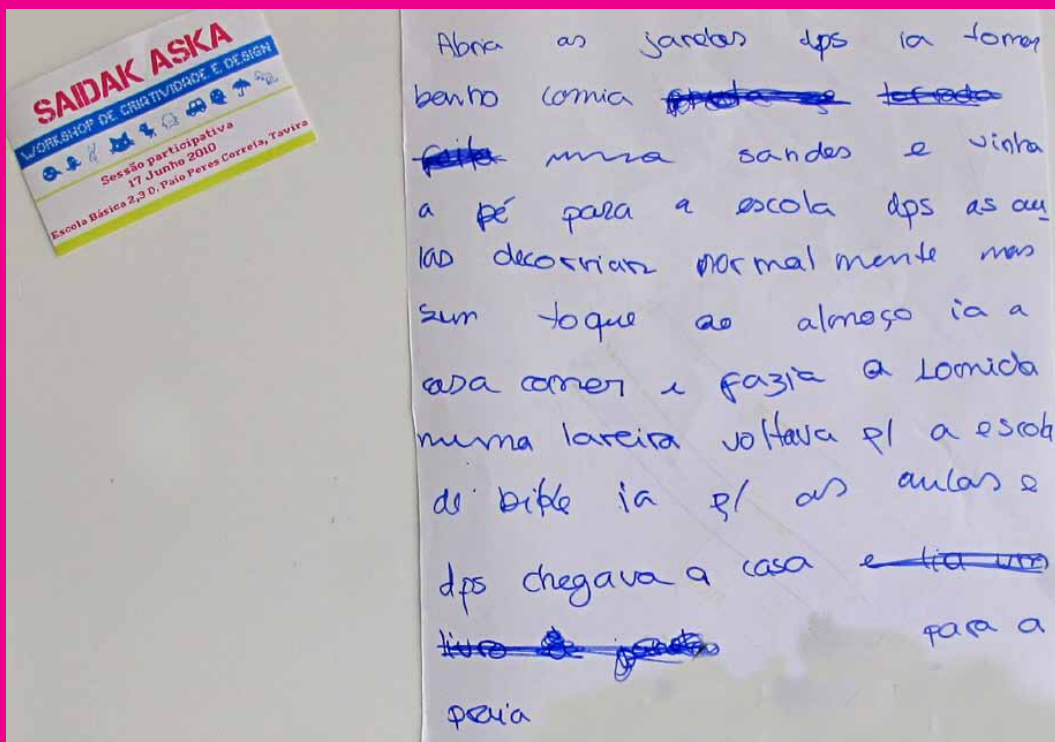 SAIDAK ASKA
WORKSHOP DE CRIATIVIDADE E DESIGN
Sessão participativa
17 Junho 2010
Escola Básica 2,3 D. Paio Peres Correia, Tavira
Abria as janelas dps ia tomar
banho comia
numa sandes e vinha
a pé para a escola dps as au
las decorriam normalmente mas
sem toque ao almoço ia a
casa comer e fazia a comida
numa lareira voltava p/ a escola
de ia p/ as aulas e
dps chegava a casa e lia um
livro para a
praia